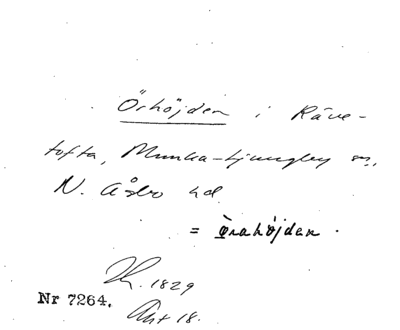 Örhöjden i Räve-
tofta, Munka-Ljungby sn.,
N. Åsbo hd.
= Örahöjden.
1829
Nr 7264.
18.